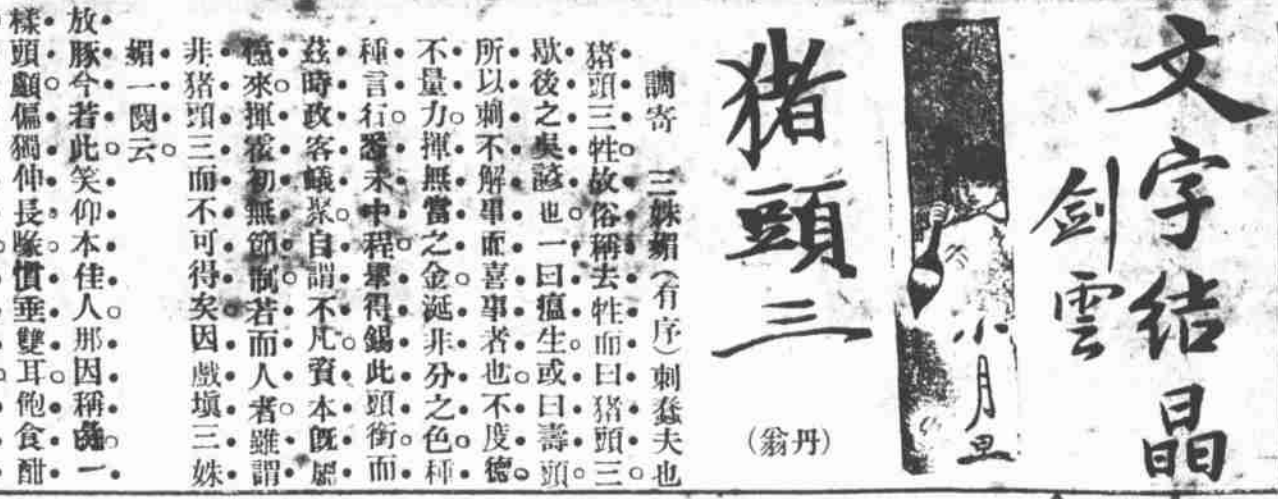 文字結晶
劍雲
小月畫
猪頭三
（丹翁）
調寄　三姝媚（有序）刺蠢夫也
猪頭三牲故俗稱去牲而曰猪頭三
歇後之吳諺也一曰瘟生或曰壽頭
所以刺不解事而喜事者也不度德
不量力揮無當之金涎非分之色種
種言行悉未中程畢得錫此頭銜而
茲時政客蟻聚自謂不凡資本既
來揮霍初無節制若而人者雖謂
非猪頭三而不可得矣因戲塡三姝
媚一闋云
放豚今若此笑仰本佳人那因稱一
樣頭顱偏獨伸長喙慣垂雙耳飽食酣